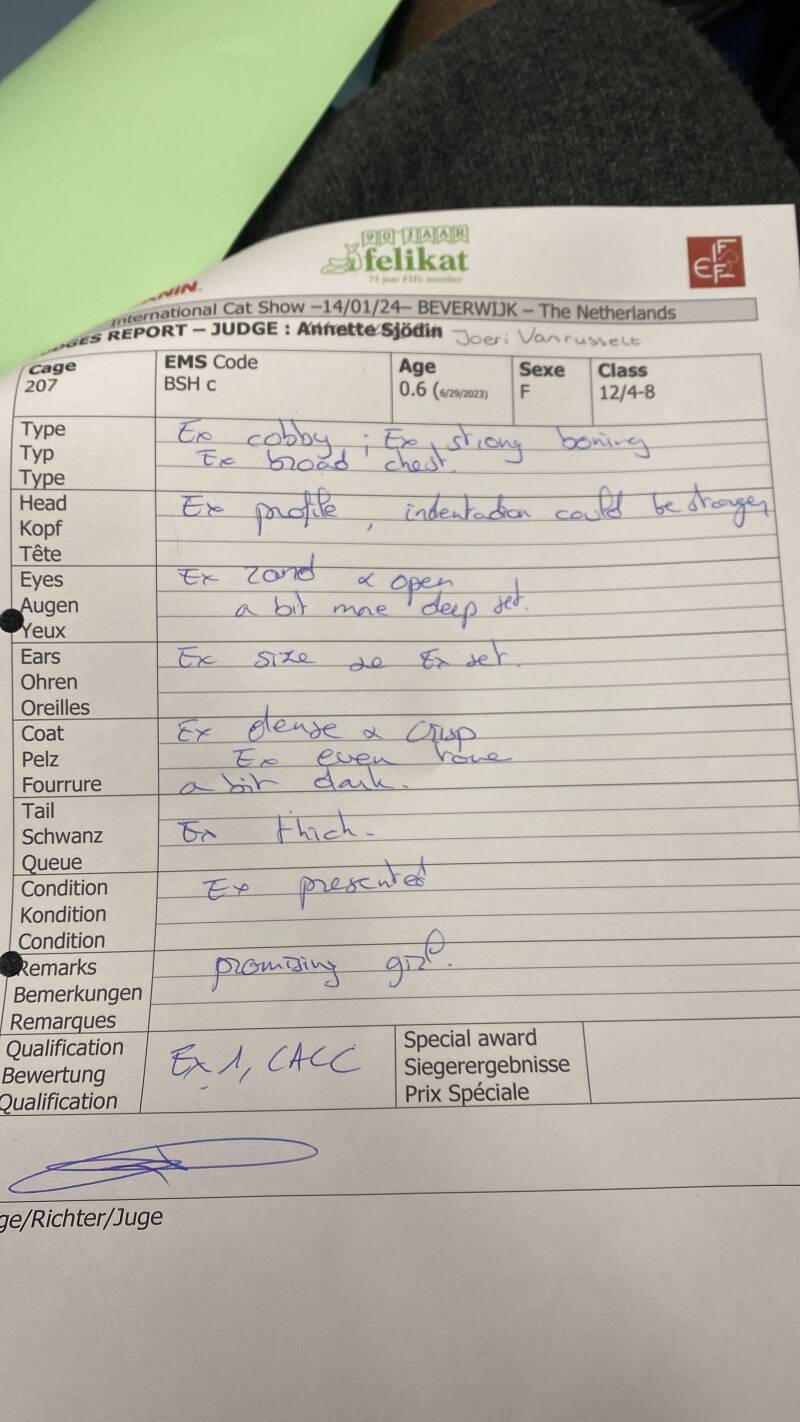 90 JAAR
felikat
75 jaar FIFe member
FIFe
ANIN
International Cat Show –14/01/24– BEVERWIJK – The Netherlands
GES REPORT – JUDGE : Annette Sjödin Joeri Vanrusselt
Cage
207
EMS Code
BSH c
Age
0.6 (6/29/2023)
Sexe
F
Class
12/4-8
Type
Typ
Type
Ex cobby ; Ex strong boning
Ex broad chest.
Head
Kopf
Tête
Ex profile, indentation could be stronger
Eyes
Augen
Yeux
Ex & open
a bit more deep set.
Ears
Ohren
Oreilles
Ex size Ex set.
Coat
Pelz
Fourrure
Ex dense & crisp
Ex even
a bit dark.
Tail
Schwanz
Queue
Ex thich.
Condition
Kondition
Condition
Ex presented
Remarks
Bemerkungen
Remarques
promising girl.
Qualification
Bewertung
Qualification
Ex 1, CACC
Special award
Siegerergebnisse
Prix Spéciale
ge/Richter/Juge